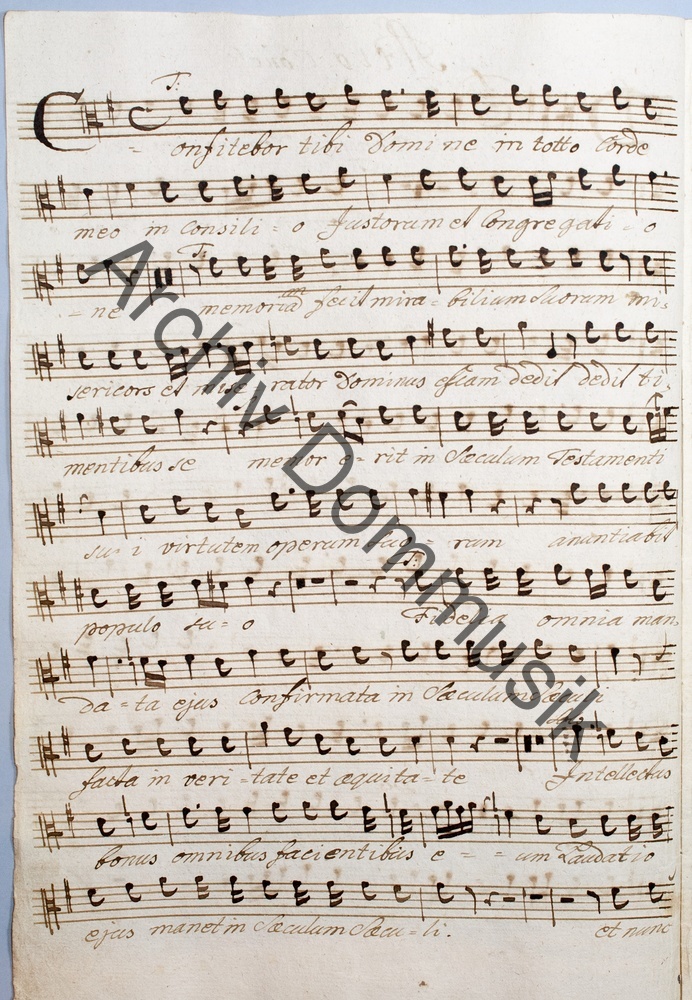 T:
Confitebor tibi Domi ne in totto Corde
meo in Consili = o Justorum et Congregati = o
T:
= ne memoriam fecit mira = bilium Suorum mi=
sericors et mise rator Dominus escam dedit dedit ti=
mentibus se memor e = rit in Sæculum Testamenti
su = i virtutem operum suo = rum anuntiabit
T:
populo su = o Fidelia omnia man
da = ta ejus Confirmata in Sæculum Sæculi
facta in veri = tate et æquita = te Intellectus
bonus omnibus facientibus e = = um Laudatio
ejus manet in Sæculum Sæcu = li. et nunc
Archiv Dommusik